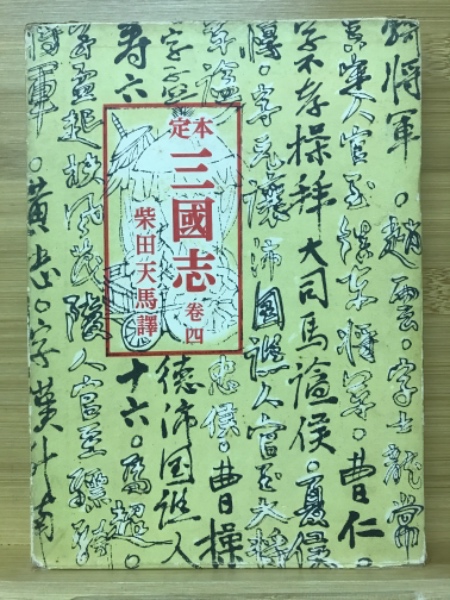 定本
三國志
卷四
柴田天馬譯
將軍。趙雲。字士龍常
真定人官至鎮東將軍。曹仁
字子孝操拜大司馬諡侯。夏侯
惇。字元讓沛國譙人官至大將
軍諡忠侯。曹操
字孟德沛国譙人
寿六十六。馬超。
字孟起扶風茂陵人官至驃騎
將軍。黄忠。字漢升南